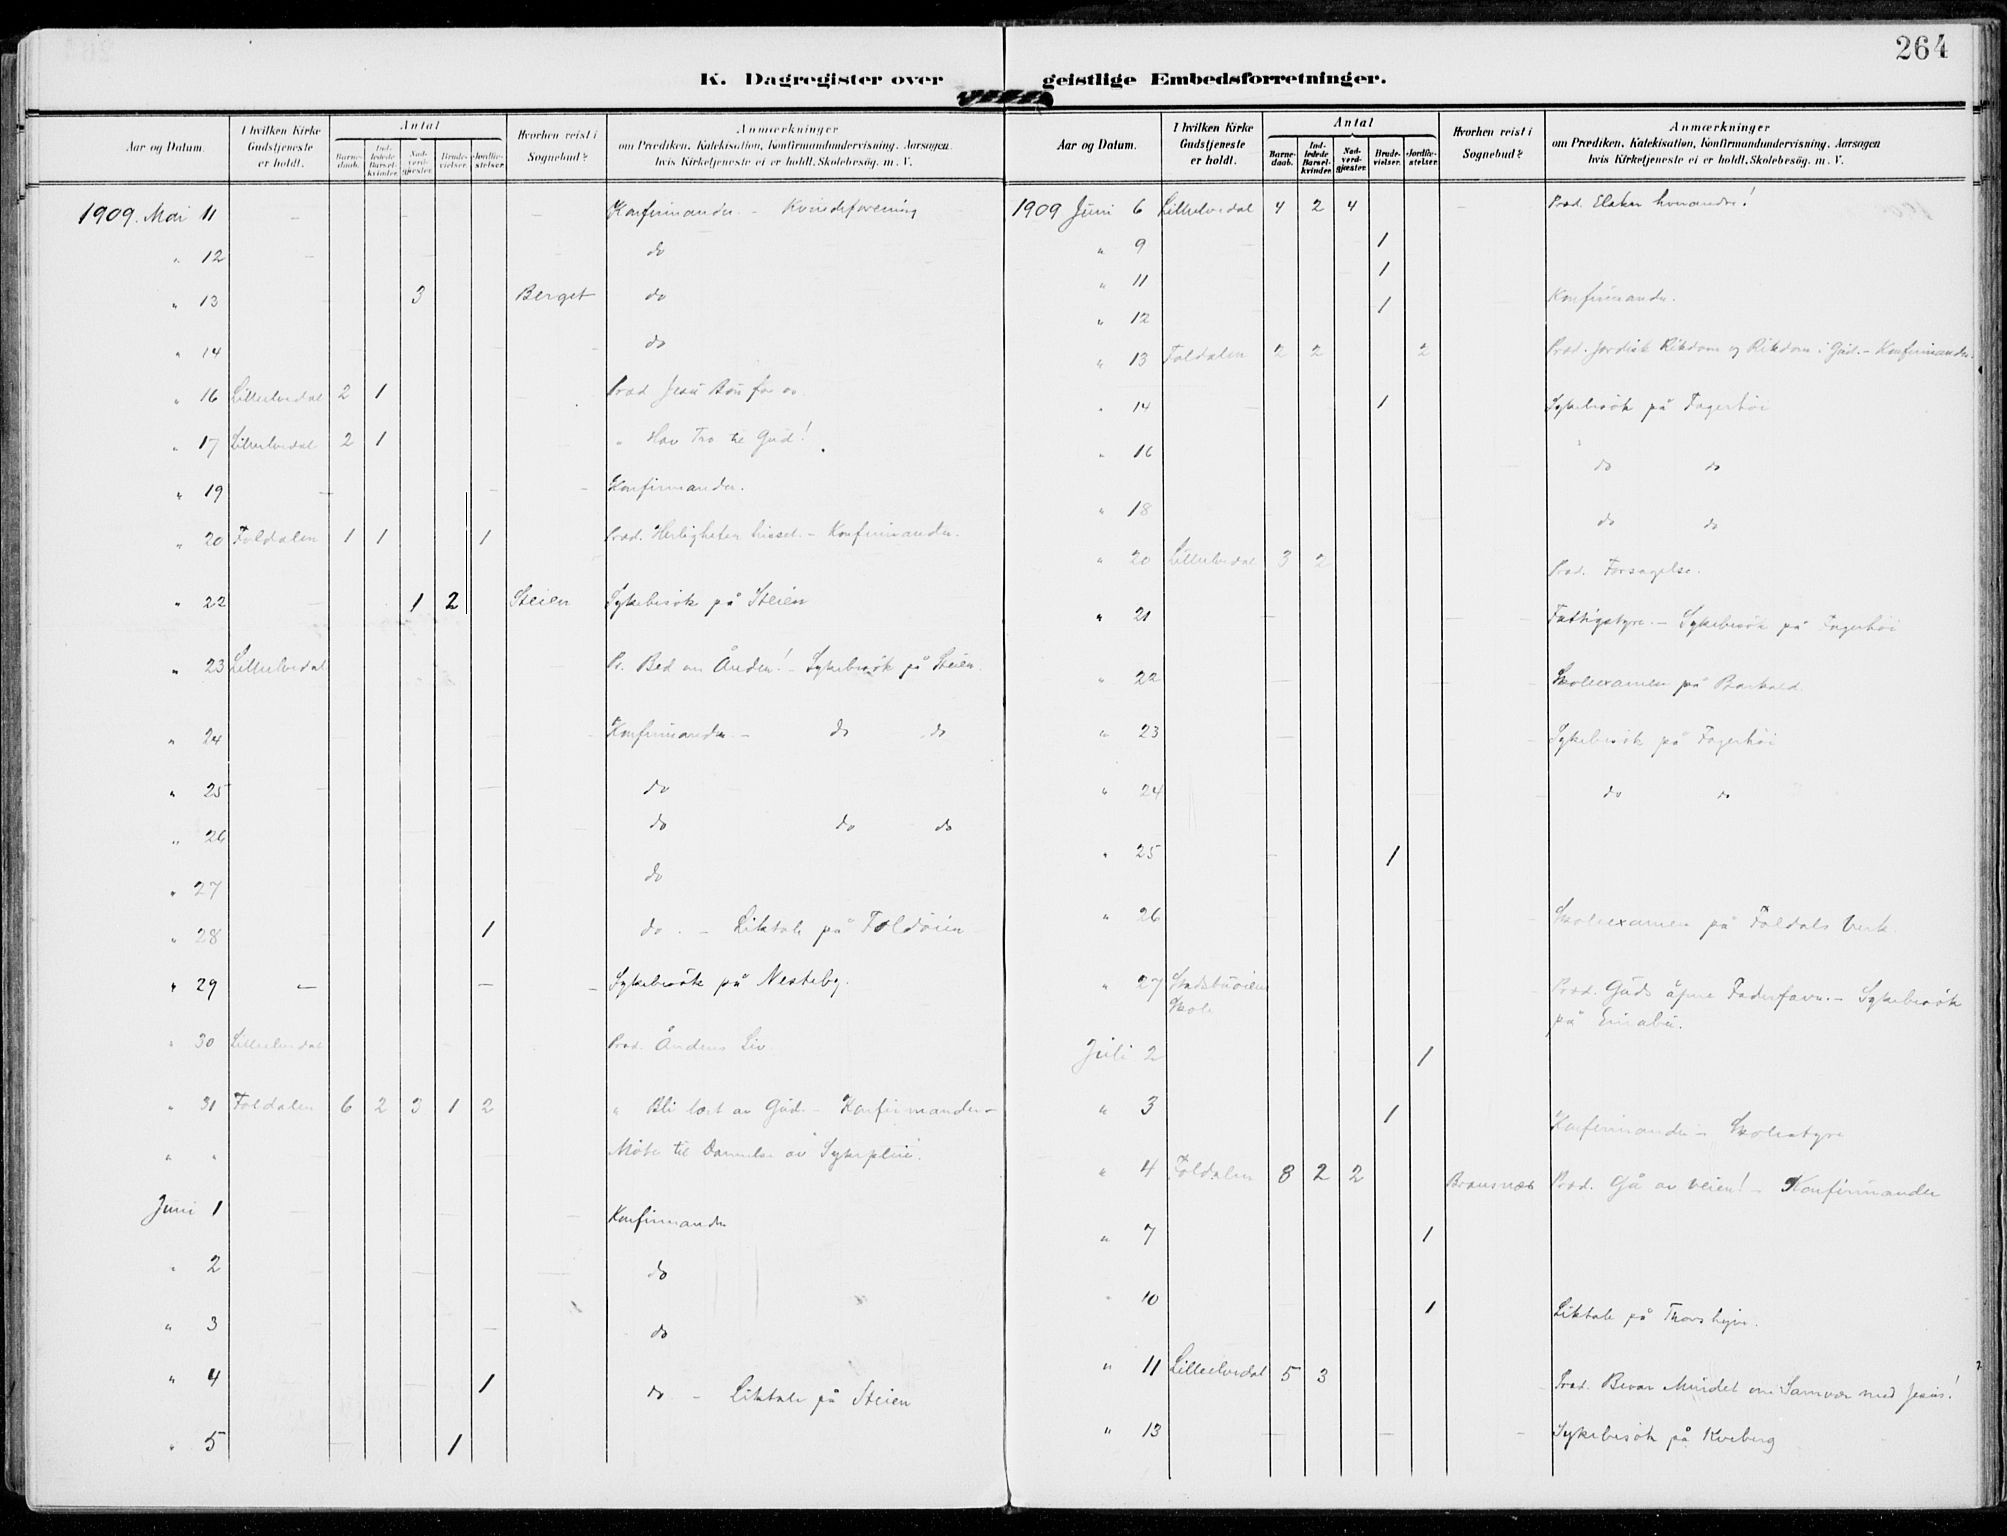 264
K. Dagregister over geistlige Embedsforretninger.
Aar og Datum. I hvilken Kirke Gudstjeneste er holdt. Antal Barnedaab. Indledede Barselkvinder. Nadverdgjæster. Brudevielser. Jordfæstelser. Hvorhen reist i Sognebud? Anmærkninger om Prædiken, Katekisation, Konfirmandundervisning, Aarsagen hvis Kirketjeneste ei er holdt, Skolebesøg, m. V.
1909. Mai 11 Konfirmander. - Kvindeforening
" 12 do
" 13 3 Berget do
" 14 do
" 16 Lilleelvedal 2 1 Præd. Jesu Bøn for os.
" 17 Lilleelvedal 2 1 " Hav Tro til Gud!
" 19 Konfirmander.
" 20 Foldalen 1 1 1 Præd. Herligheten hisset. - Konfirmander.
" 22 1 2 Steien Sykebesøk på Steien
" 23 Lilleelvedal Pr. Bed om Ånden! - Sykebesøk på Steien.
" 24 Konfirmander - do do
" 25 do
" 26 do do do
" 27 do
" 28 1 do. - Liktale på Foldøien
" 29 — — - Sykebesøk på Nesteby.
" 30 Lilleelvedal Præd. Åndens Liv.
" 31 Foldalen 6 2 3 1 2 " Bli lært av Gud. - Konfirmander -
" " Møte til Dannelse av Sykepleie.
Juni 1 Konfirmander
" 2 do
" 3 do
" 4 1 do - Liktale på Steien
" 5 1
Aar og Datum. I hvilken Kirke Gudstjeneste er holdt. Antal Barnedaab. Indledede Barselkvinder. Nadverdgjæster. Brudevielser. Jordfæstelser. Hvorhen reist i Sognebud? Anmærkninger om Prædiken, Katekisation, Konfirmandundervisning, Aarsagen hvis Kirketjeneste ei er holdt, Skolebesög, m. V.
1909 Juni 6 Lilleelvedal 4 2 4 Præd. Elsker hverandre!
" 9 1
" 11 1
" 12 1 Konfirmander.
" 13 Foldalen 2 2 2 Præd. Jordisk Rikdom og Rikdom i Gud. - Konfirmander.
" 14 1 Sykebesök på Fagerhøi
" 16 do do
" 18 do do
" 20 Lilleelvedal 3 2 Præd. Forsagelse.
" 21 Fattigstyre. - Sykebesök på Fagerhøi
" 22 Skoleexamen på Barkald.
" 23 Sykebesök på Fagerhøi
" 24 do do
" 25 1
" 26 Skoleexamen på Foldals Verk.
" 27 Stadsbuøien Præd. Guds åpne Faderfavn. - Sykebesök
Skole på Einabu.
Juli 2 1
" 3 1 Konfirmander - Skolestyre
" 4 Foldalen 8 2 2 Brænsnæs Præd. Gå av veien! - Konfirmander
" 7 1
" 10 1 Liktale på Thorshejm.
" 11 Lilleelvedal 5 3 Præd. Bevar Mindet om Samvær med Jesus!
" 13 Sykebesök på Kveberg